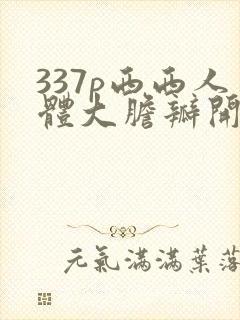 337p西西人
體大膽瓣開
元氣滿滿葉落